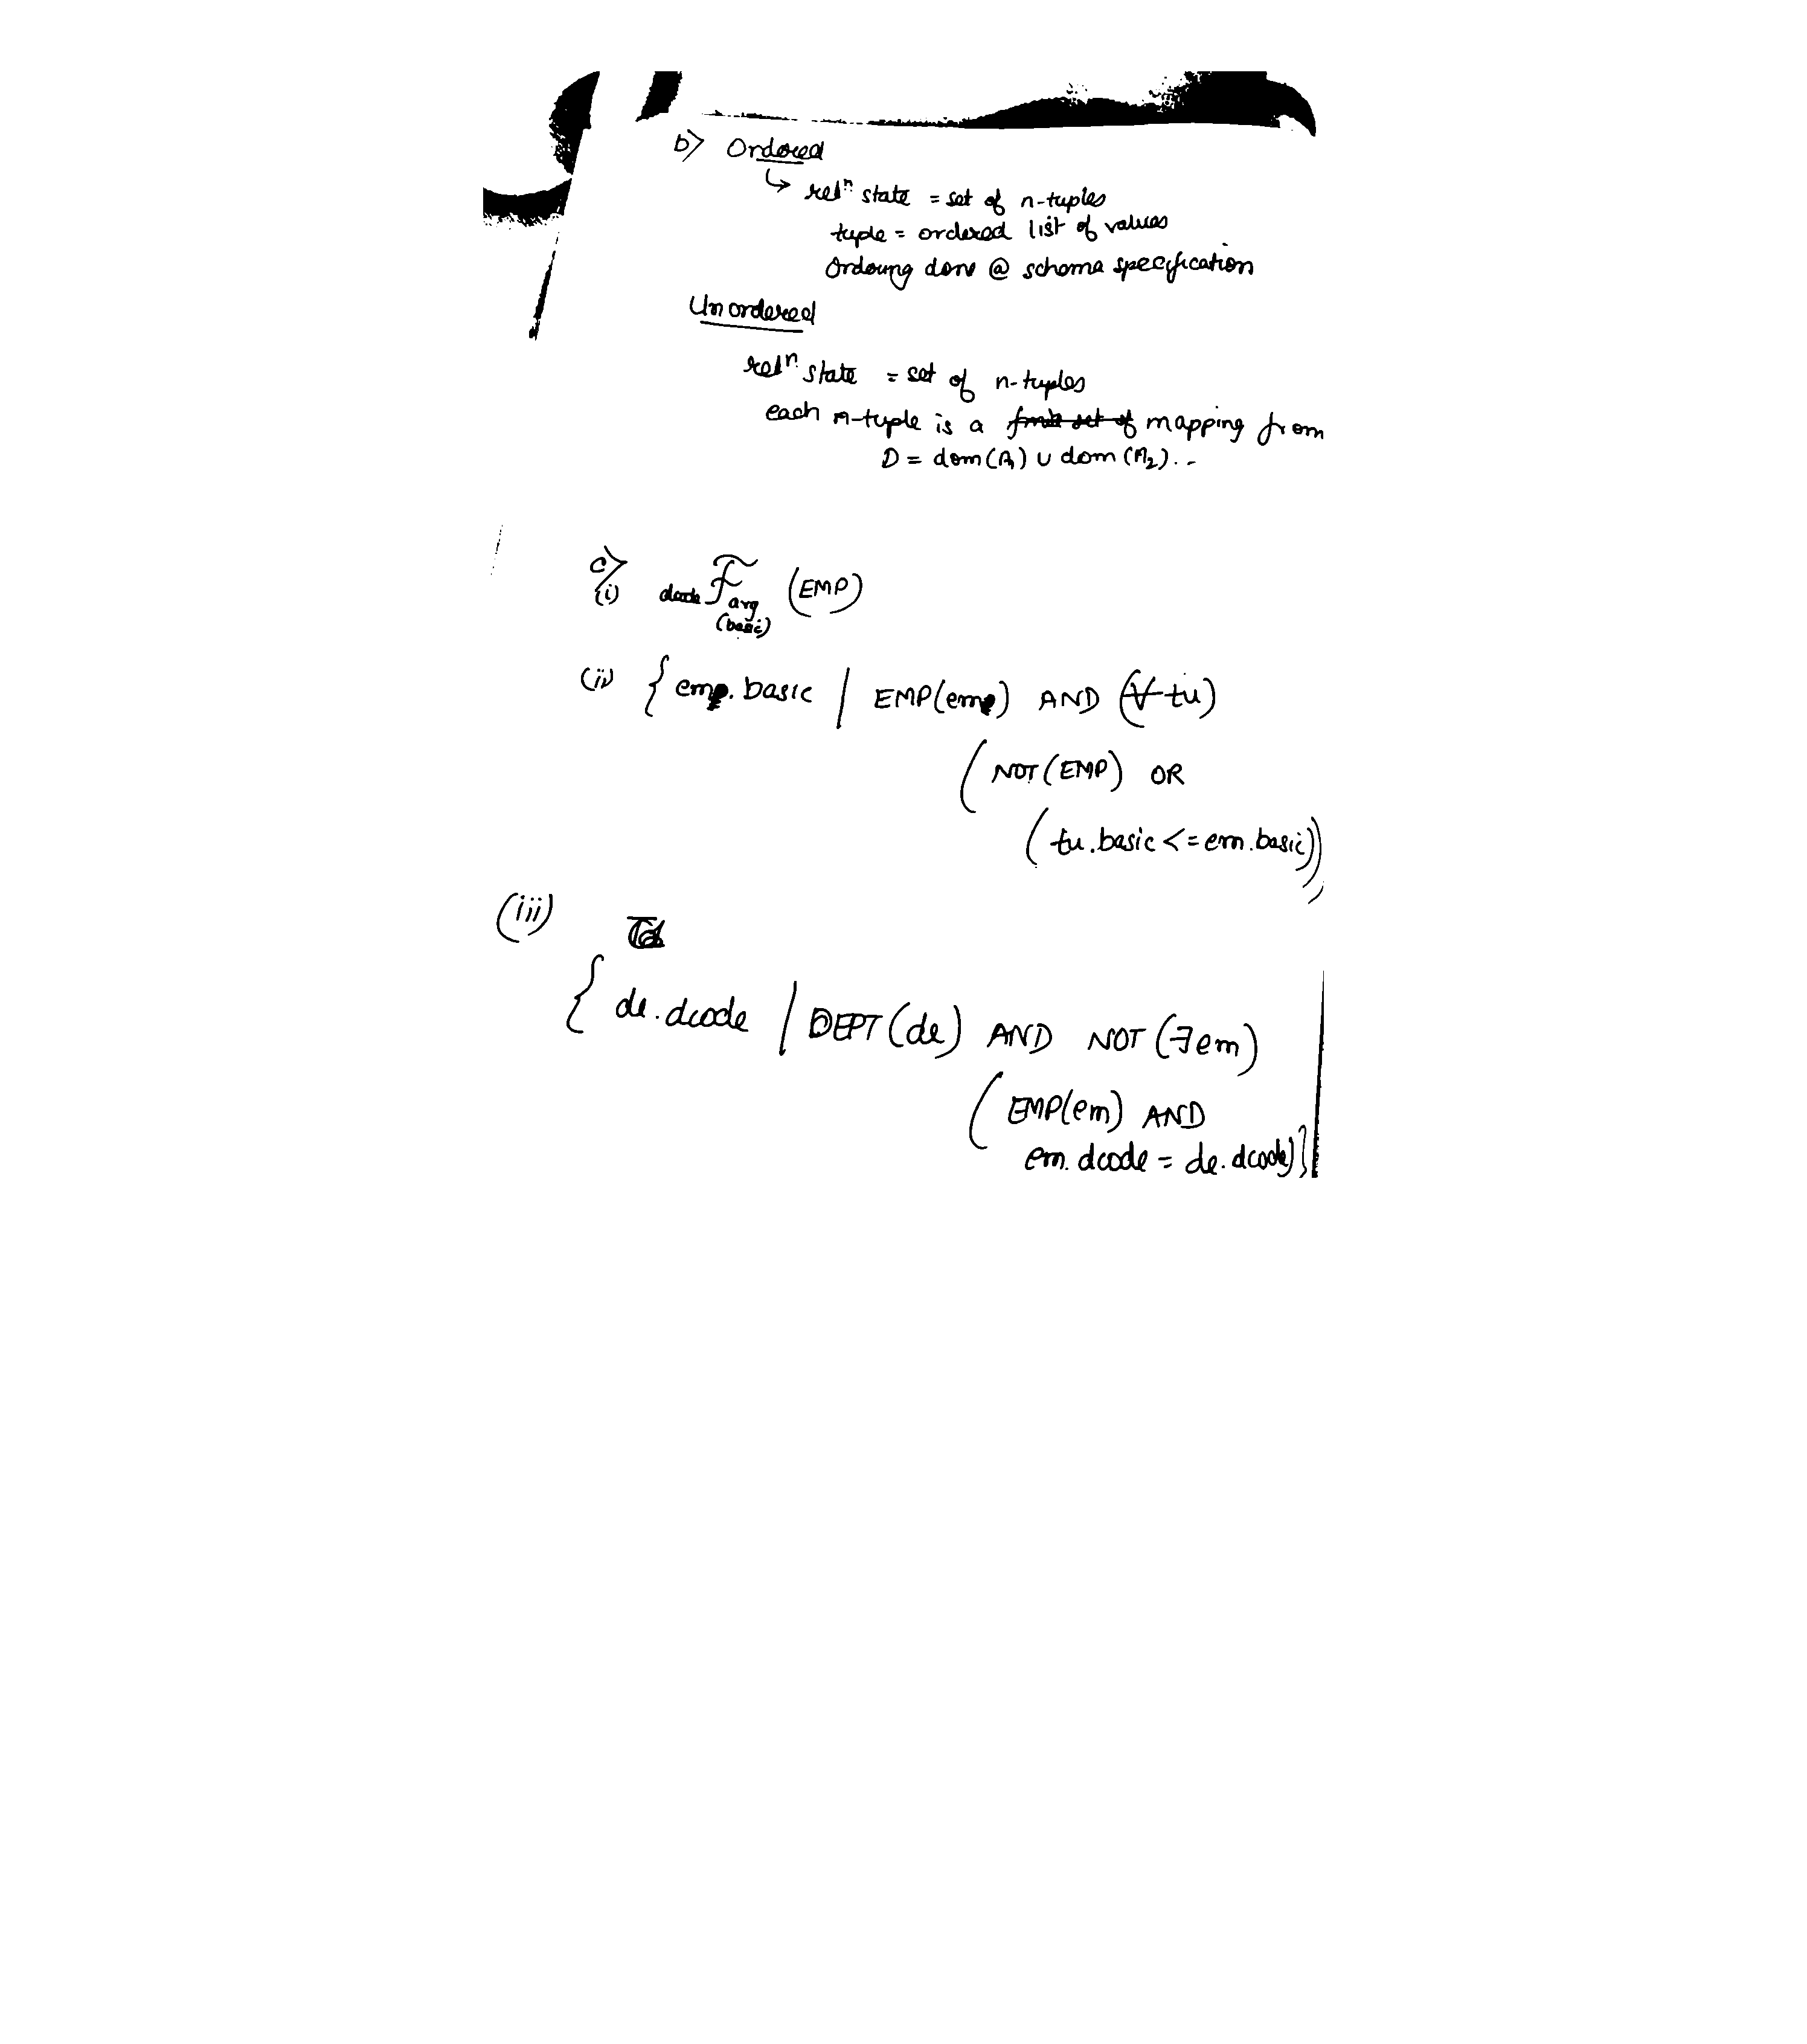 b) Ordered
↳ relⁿ state = set of n-tuples
tuple = ordered list of values
Ordering done @ schema specification
Unordered
relⁿ state = set of n-tuples
each n-tuple is a mapping from
D = dom(A₁) ∪ dom(A₂)...
c)
(i) dcode ℱ avg (EMP)
(basic)
(ii) { emp.basic | EMP(emp) AND (∀ tu)
( NOT(EMP) OR
( tu.basic <= em.basic))
(iii)
{ de.dcode | DEPT(de) AND NOT (∃em)
( EMP(em) AND
em.dcode = de.dcode)}